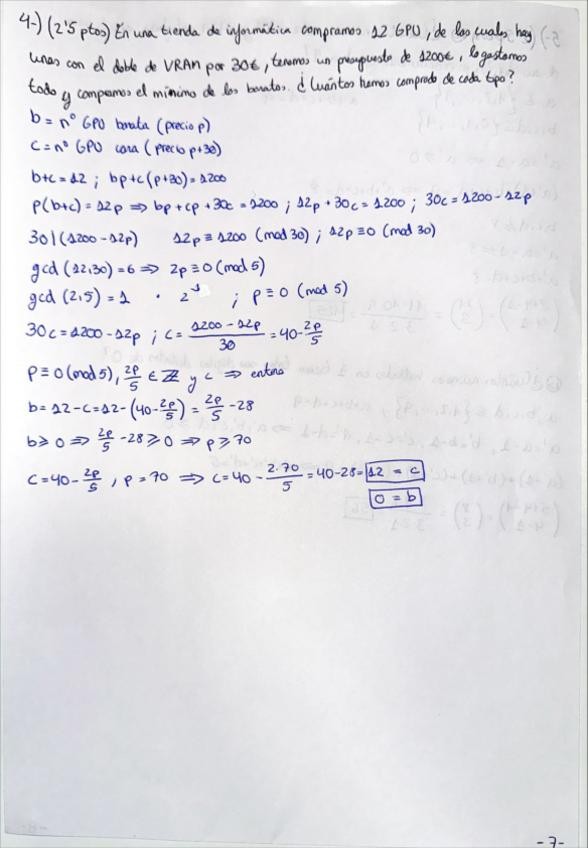 4-) (2'5 ptos) En una tienda de informática compramos 12 GPU, de las cuales hay
unas con el doble de VRAM por 30€, tenemos un presupuesto de 1200€, lo gastamos
todo y compramos el mínimo de las baratas. ¿Cuántas hemos comprado de cada tipo?
b = nº GPU barata (precio p)
c = nº GPU cara (precio p+30)
b+c = 12 ; bp+c(p+30) = 1200
p(b+c) = 12p ⇒ bp + cp + 30c = 1200 ; 12p + 30c = 1200 ; 30c = 1200 - 12p
30 | (1200 - 12p) 12p ≡ 1200 (mod 30) ; 12p ≡ 0 (mod 30)
gcd (12,30) = 6 ⇒ 2p ≡ 0 (mod 5)
gcd (2,5) = 1 · 2⁻¹ ; p ≡ 0 (mod 5)
30c = 1200 - 12p ; c = (1200 - 12p)/30 = 40 - 2p/5
p ≡ 0 (mod 5), 2p/5 ∈ ℤ y c ⇒ entero
b = 12 - c = 12 - (40 - 2p/5) = 2p/5 - 28
b ≥ 0 ⇒ 2p/5 - 28 ≥ 0 ⇒ p ≥ 70
c = 40 - 2p/5 , p = 70 ⇒ c = 40 - 2·70/5 = 40 - 28 = 12 = c
0 = b
- 7 -